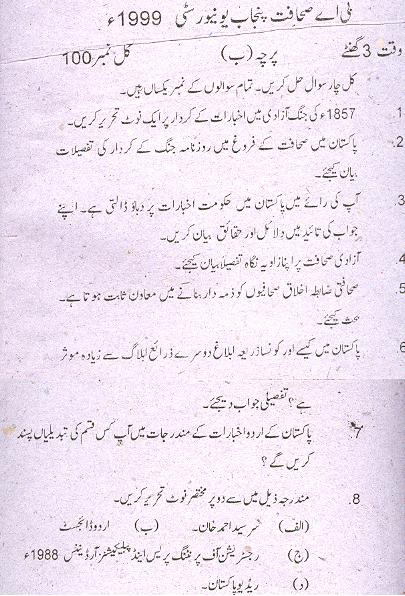 بی اے صحافت پنجاب یونیورسٹی 1999ء
وقت 3 گھنٹے پرچہ (ب) کل نمبر 100
کل چار سوال حل کریں۔ تمام سوالوں کے نمبر یکساں ہیں۔
1. 1857ء کی جنگ آزادی میں اخبارات کے کردار پر ایک نوٹ تحریر کریں۔
2. پاکستان میں صحافت کے فروغ میں روزنامہ جنگ کے کردار کی تفصیلات
بیان کیجئے۔
3. آپ کی رائے میں پاکستان میں حکومت اخبارات پر دباؤ ڈالتی ہے۔ اپنے
جواب کی تائید میں دلائل اور حقائق بیان کریں۔
4. آزادی صحافت پر اپنا زاویہ نگاہ تفصیلاً بیان کیجئے۔
5. صحافتی ضابطہ اخلاق صحافیوں کو ذمہ دار بنانے میں معاون ثابت ہوتا ہے۔
بحث کیجئے۔
6. پاکستان میں کیسے اور کونسا ذریعہ ابلاغ دوسرے ذرائع ابلاغ سے زیادہ موثر
ہے؟ تفصیلی جواب دیجئے۔
7. پاکستان کے اردو اخبارات کے مندرجات میں آپ کس قسم کی تبدیلیاں پسند
کریں گے؟
8. مندرجہ ذیل میں سے دو پر مختصر نوٹ تحریر کریں۔
(الف) سرسید احمد خان۔ (ب) اردو ڈائجسٹ
(ج) رجسٹریشن آف پرنٹنگ پریس اینڈ پبلیکیشنز آرڈیننس 1988ء
(د) ریڈیو پاکستان۔